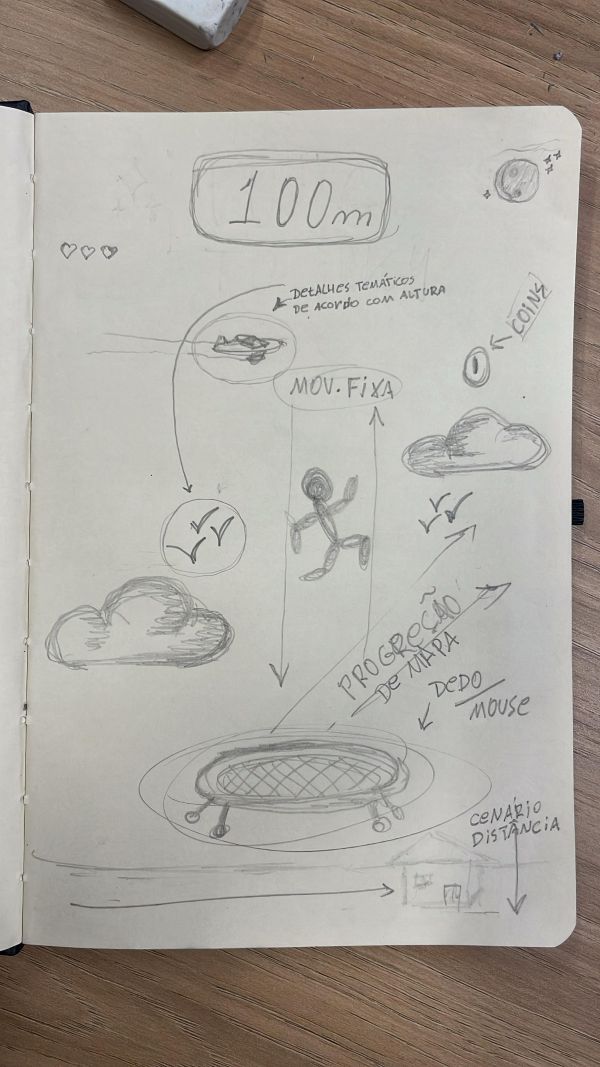 100m
DETALHES TEMÁTICOS
DE ACORDO COM ALTURA
COINS
MOV. FIXA
PROGREÇÃO
DE MAPA
DEDO
MOUSE
CENÁRIO
DISTÂNCIA